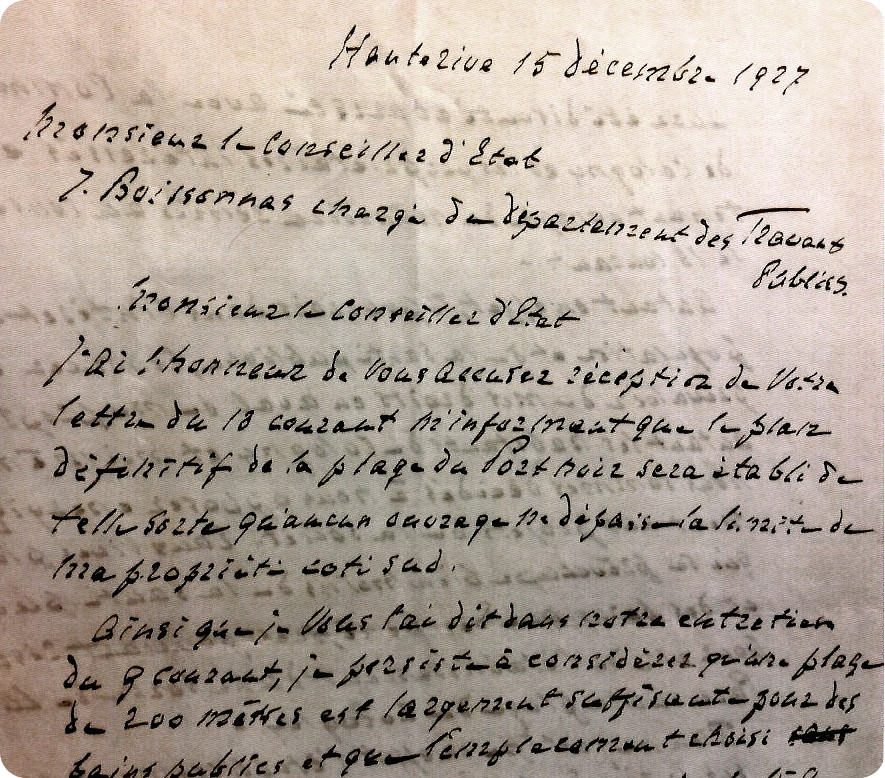 Hauterive 15 décembre 1927
Monsieur le Conseiller d'Etat
J. Boissonnas chargé du département des Travaux
Publics.
Monsieur le Conseiller d'Etat
J'ai l'honneur de Vous accuser réception de Votre
lettre du 13 courant m'informant que le plan
définitif de la plage du Port noir sera établi de
telle sorte qu'aucun ouvrage ne dépasse la limite de
ma propriété coté sud.
Ainsi que je Vous l'ai dit dans notre entretien
du 9 courant, je persiste à considérer qu'une plage
de 200 mètres est largement suffisante pour des
bains publics et que l'emplacement choisi